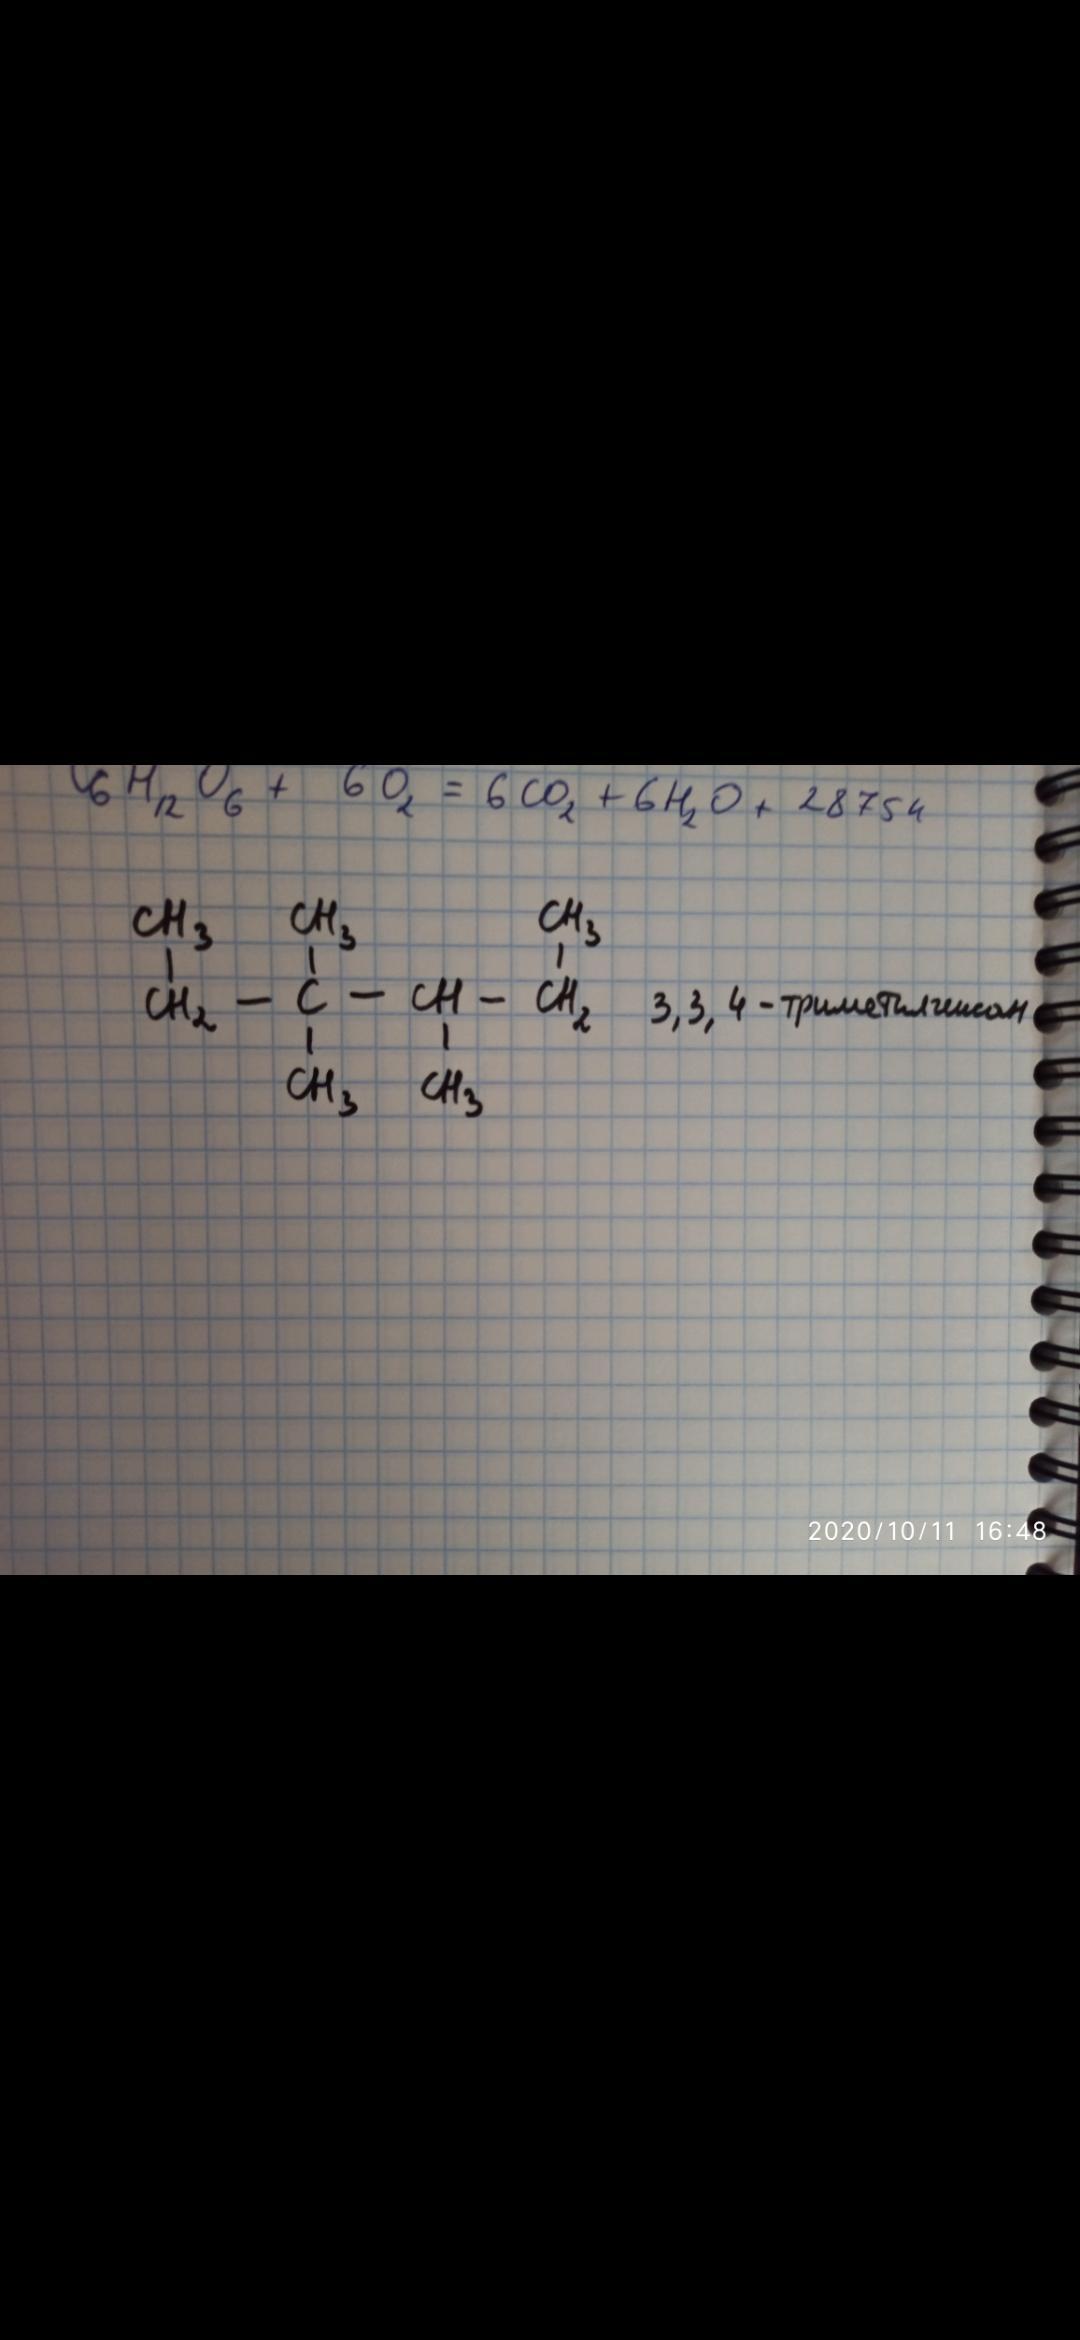 C6H12O6 + 6O2 = 6CO2 + 6H2O + 28754
CH3 CH3 CH3
CH2 — C — CH — CH2 3,3,4-триметилгексан
CH3 CH3
2020/10/11 16:48